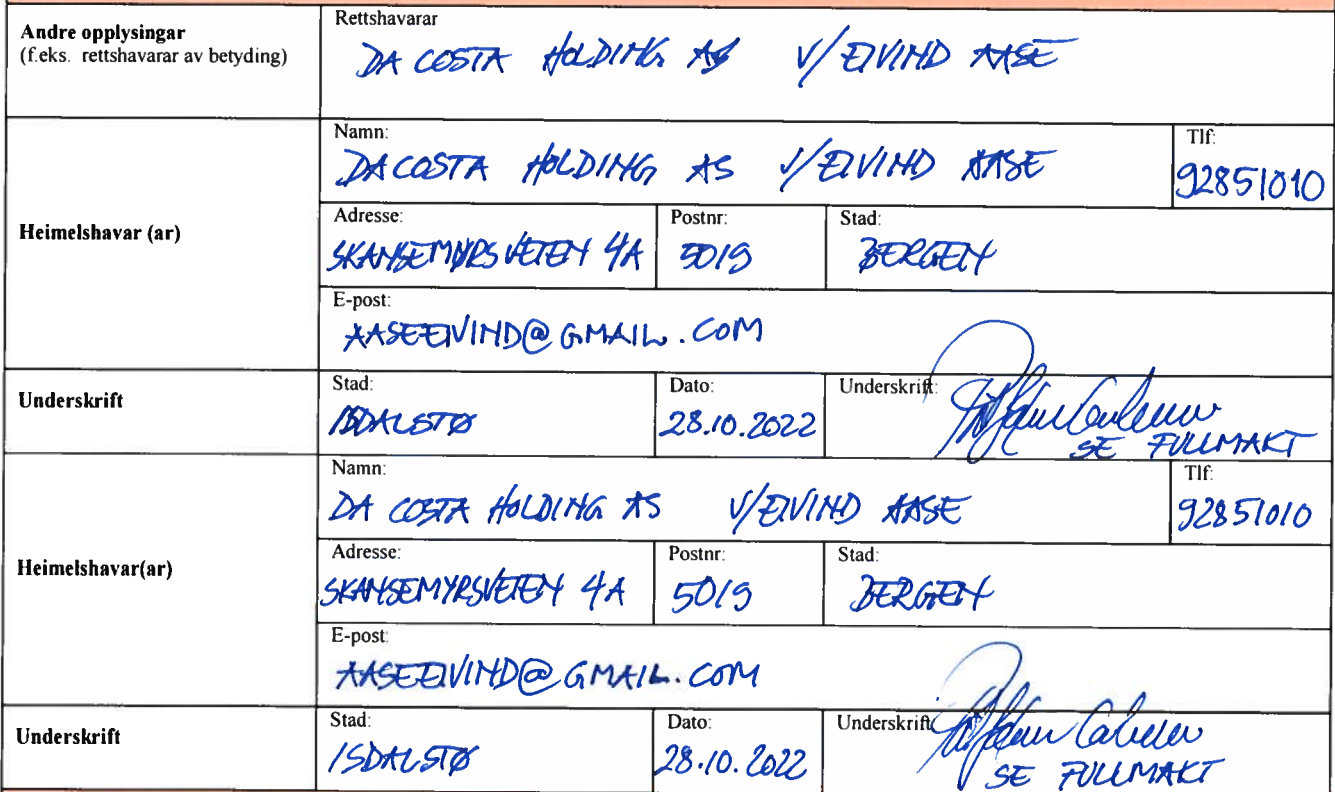 Andre opplysingar
(f.eks. rettshavarar av betyding)
Rettshavarar
DA COSTA HOLDING AS V/ EIVIND AASE
Heimelshavar (ar)
Namn:
DA COSTA HOLDING AS V/ EIVIND AASE
Tlf:
92851010
Adresse:
SKANSEMYRSVEIEN 4A
Postnr:
5019
Stad:
BERGEN
E-post:
AASEEIVIND@GMAIL.COM
Underskrift
Stad:
ISDALSTØ
Dato:
28.10.2022
Underskrift:
SE FULLMAKT
Heimelshavar(ar)
Namn:
DA COSTA HOLDING AS V/ EIVIND AASE
Tlf:
92851010
Adresse:
SKANSEMYRSVEIEN 4A
Postnr:
5019
Stad:
BERGEN
E-post:
AASEEIVIND@GMAIL.COM
Underskrift
Stad:
ISDALSTØ
Dato:
28.10.2022
Underskrift
SE FULLMAKT